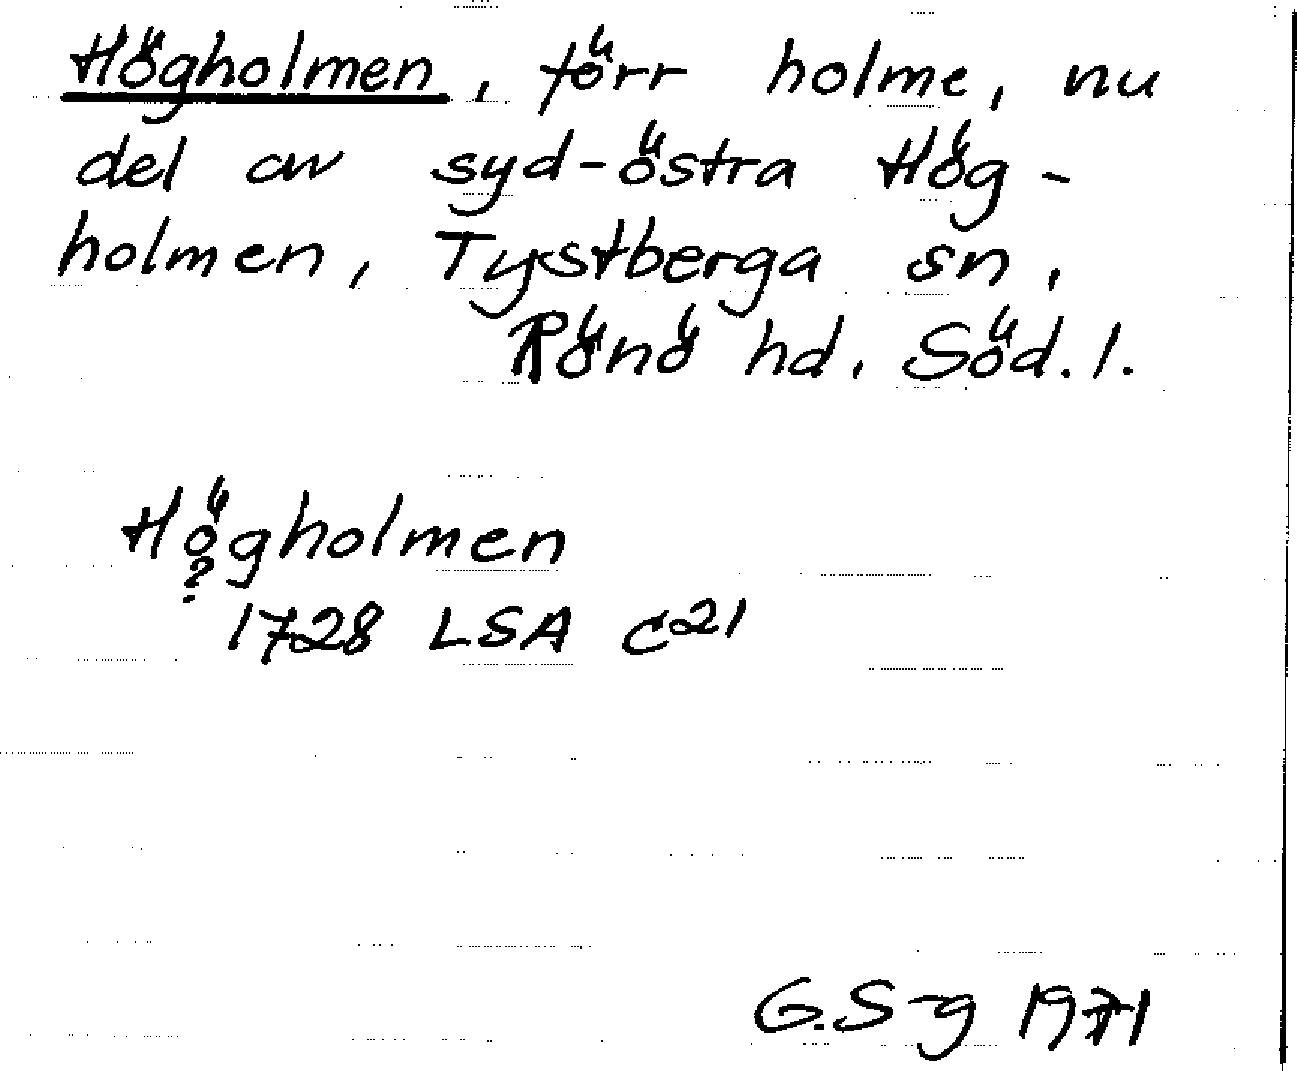 Högholmen, förr holme, nu
del av syd-östra Hög-
holmen, Tystberga sn,
Rönö hd, Söd. l.
Högholmen
?
1728 LSA C21
G.S-g 1971